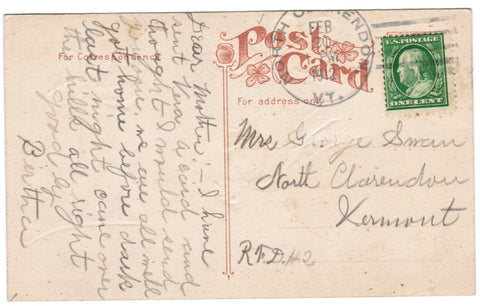 Post Card
For Correspondence
For address only
NORTH CLARENDON
FEB
1912
VT.
U.S. POSTAGE
ONE CENT
Dear Mother:- I have
sent Jura a card and
thought I would send
you one. we are all well
got home before dark
last night came over
the hills all right
good by
Bertha
Mrs George Swan
North Clarendon
Vermont
R.F.D. #2